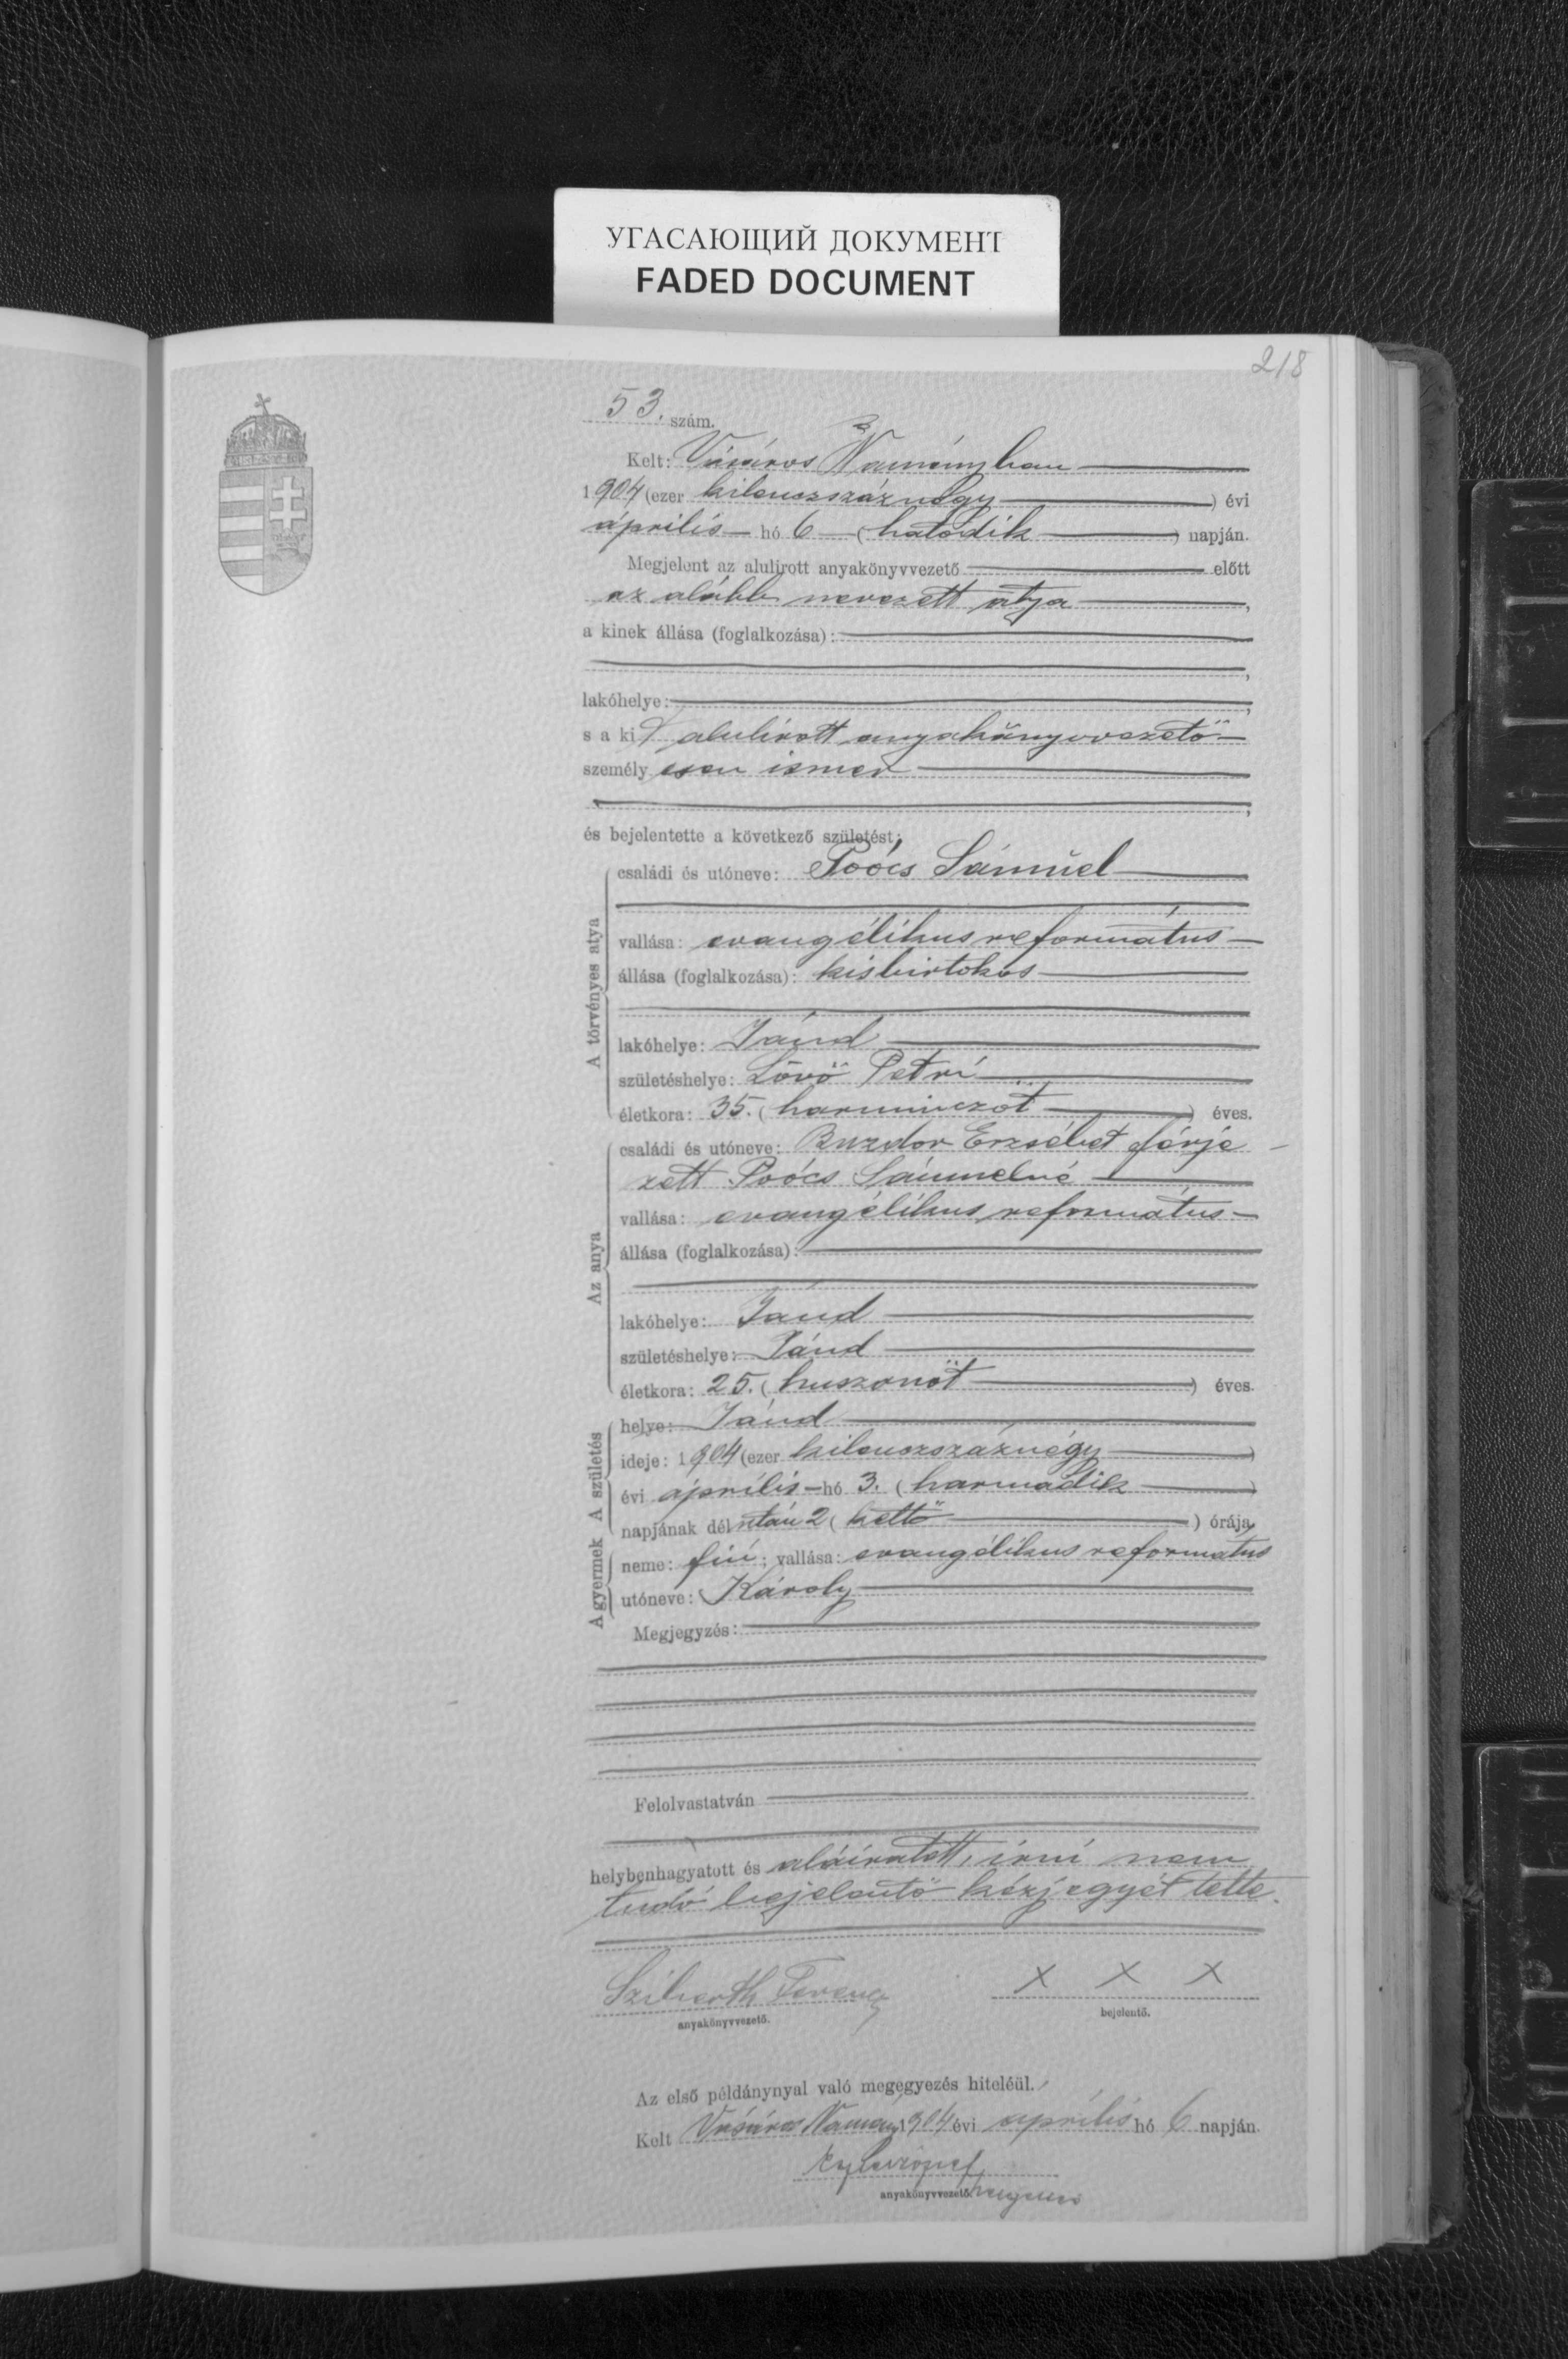 УГАСАЮЩИЙ ДОКУМЕНТ
FADED DOCUMENT
218
53. szám.
Kelt: Vásáros Naményban
1904 (ezer kilenczszáznégy) évi
április hó 6 (hatodik) napján.
Megjelent az alulirott anyakönyvvezető előtt
az alább nevezett atya,
a kinek állása (foglalkozása):
lakóhelye:
s a kit alulírott anyakönyvvezető
személyesen ismer
és bejelentette a következő születést:
A törvényes atya
családi és utóneve: Poócs Sámuel
vallása: evangélikus református
állása (foglalkozása): kisbirtokos
lakóhelye: Jánd
születéshelye: Lövő Petri
életkora: 35. (harminczöt) éves.
Az anya
családi és utóneve: Buzdor Erzsébet férje-
zett Poócs Sámuelné
vallása: evangélikus református
állása (foglalkozása):
lakóhelye: Jánd
születéshelye: Jánd
életkora: 25. (huszonöt) éves.
A születés
helye: Jánd
ideje: 1904 (ezer kilenczszáznégy)
évi április hó 3. (harmadik)
napjának délután 2 (kettő) órája.
A gyermek
neme: fiú; vallása: evangélikus református
utóneve: Károly
Megjegyzés:
Felolvastatván
helybenhagyatott és aláiratott, irni nem
tudó bejelentő kézjegyét tette.
Sziberth Ferencz
x x x
anyakönyvvezető.
bejelentő.
Az első példánynyal való megegyezés hiteléül.
Kelt Vásáros Namény 1904 évi április hó 6 napján.
anyakönyvvezető